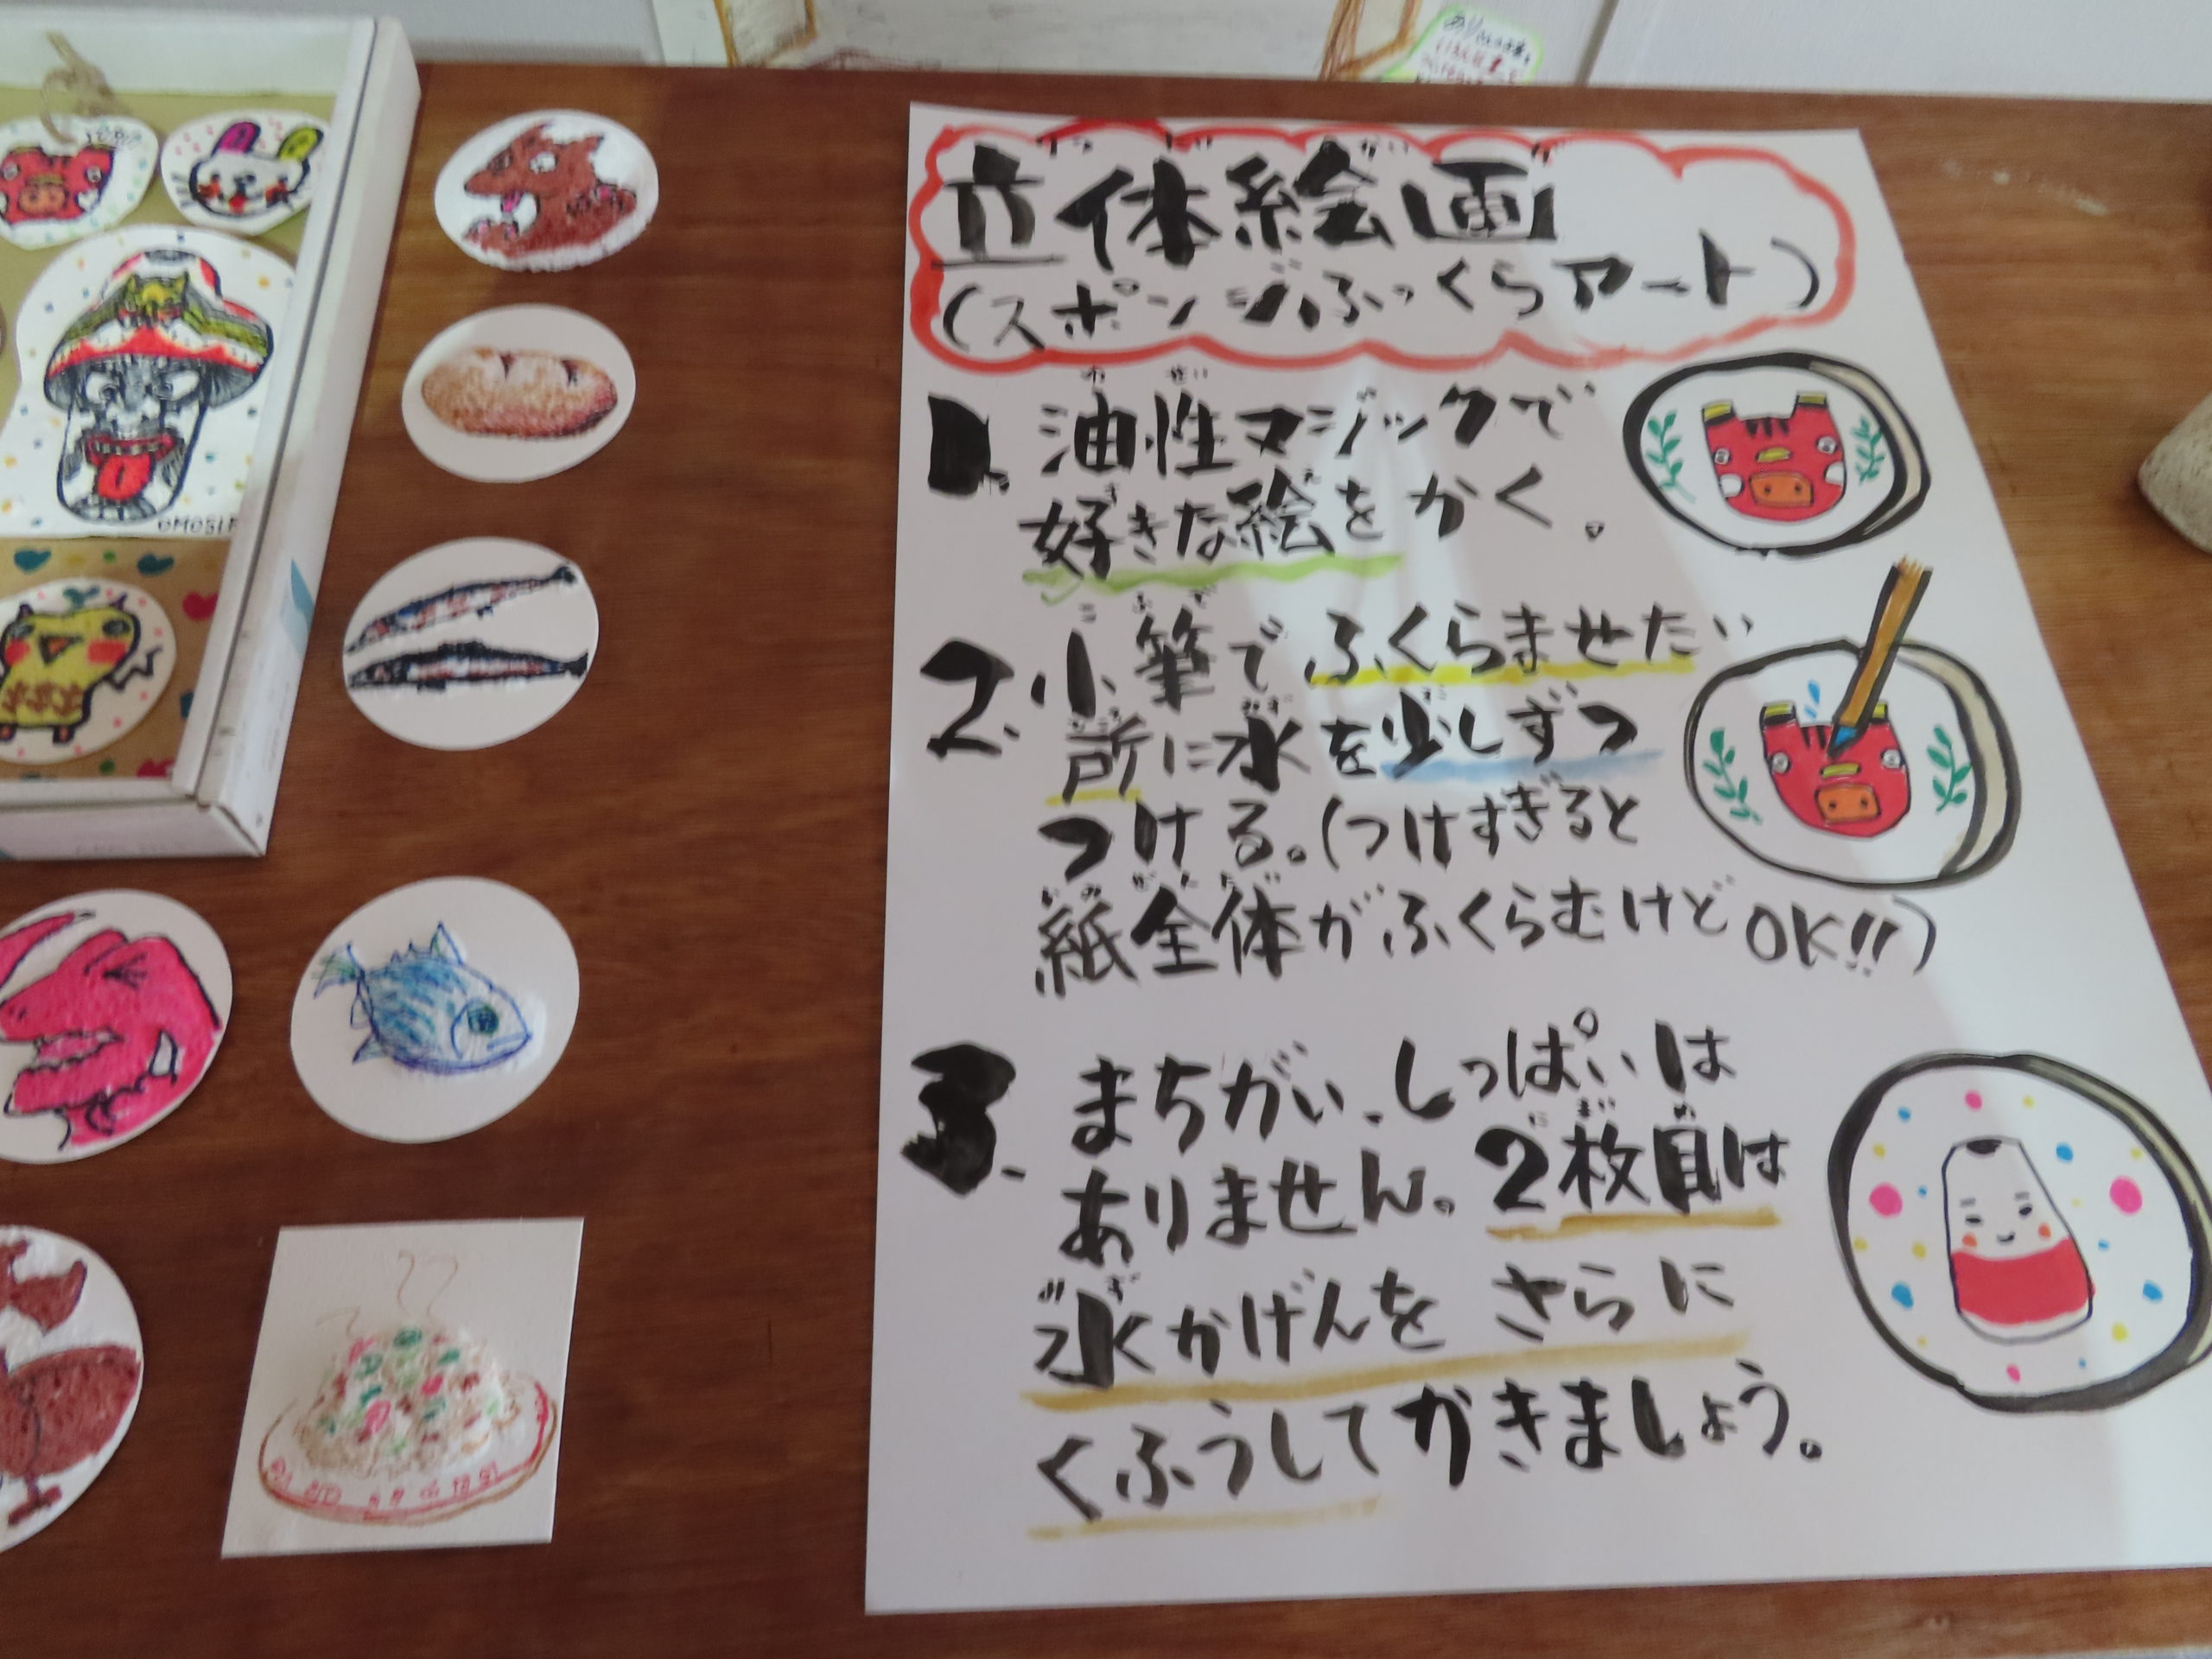 立体絵画
(スポンジふっくらアート)
1. 油性マジックで
好きな絵をかく。
2. 小筆でふくらませたい
所に水を少しずつ
つける。(つけすぎると
紙全体がふくらむけどOK!!)
3. まちがい、しっぱいは
ありません。2枚目は
水かげんをさらに
くふうしてかきましょう。